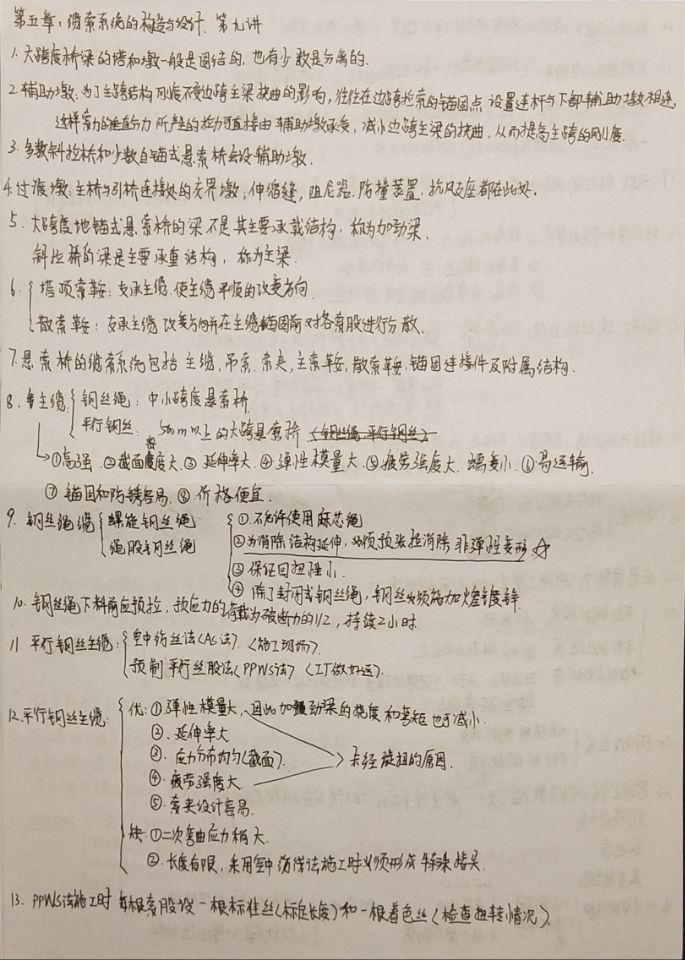 第五章：缆索系统的构造与设计. 第九讲
1. 大跨度桥梁的塔和墩一般是固结的. 也有少数是分离的.
2. 辅助墩. 为了主跨结构刚度不受边跨主梁挠曲的影响, 往往在边跨拉索的锚固点 设置连杆与下部辅助墩相连
这样索力的垂直分力 所产生的拉力可直接由 辅助墩承受, 减小边跨主梁的挠曲, 从而提高主跨的刚度.
3. 多数斜拉桥和少数自锚式悬索桥会设辅助墩.
4. 过渡墩. 主桥与引桥连接处的交界墩, 伸缩缝, 阻尼器, 防撞装置, 抗风支座都在此处.
5. 大跨度地锚式悬索桥的梁不是其主要承载结构, 称为加劲梁.
斜拉桥的梁是主要承重结构, 称为主梁.
6. 塔顶索鞍: 支承主缆. 使主缆平顺的改变方向.
散索鞍: 支承主缆 改变方向并在主缆锚固前对各索股进行分散.
7. 悬索桥的缆索系统包括 主缆, 吊索. 索夹, 主索鞍, 散索鞍, 锚固连接件及附属结构.
8. 主缆 钢丝绳: 中小跨度悬索桥
平行钢丝: 500m以上的大跨悬索桥 (钢丝绳 平行钢丝)
→①高强. ②截面密度大. ③ 延伸率大. ④ 弹性模量大. ⑤疲劳强度大. 蠕变小. ⑥易运输.
⑦ 锚固和防锈容易. ⑧. 价格便宜.
9. 钢丝绳缆 螺旋钢丝绳 ①. 不允许使用麻芯绳
绳股钢丝绳 ②为消除结构延伸, 必须预张拉消除 非弹性变形 ☆
③ 保证回扭性小.
④ 除了封闭式钢丝绳, 钢丝必须施加热镀锌.
10. 钢丝绳下料前应预拉, 预应力的荷载为破断力的1/2, 持续2小时
11. 平行钢丝主缆: 空中纺丝法(AS法). (施工现场).
预制平行丝股法(PPWS法) (工厂做好运).
12. 平行钢丝主缆: 优: ①弹性模量大, 因此加劲梁的挠度 和弯矩 也可减小.
②. 延伸率大
③. 应力分布均匀(截面). 未经旋扭的原因.
④ 疲劳强度大
⑤ 索夹设计容易.
缺: ①二次弯曲应力稍大.
②. 长度有限, 采用空中纺线法施工时必须形成 接头.
13. PPWS法施工时 每根索股设一根标准丝(标定长度)和一根着色丝(检查扭转情况)